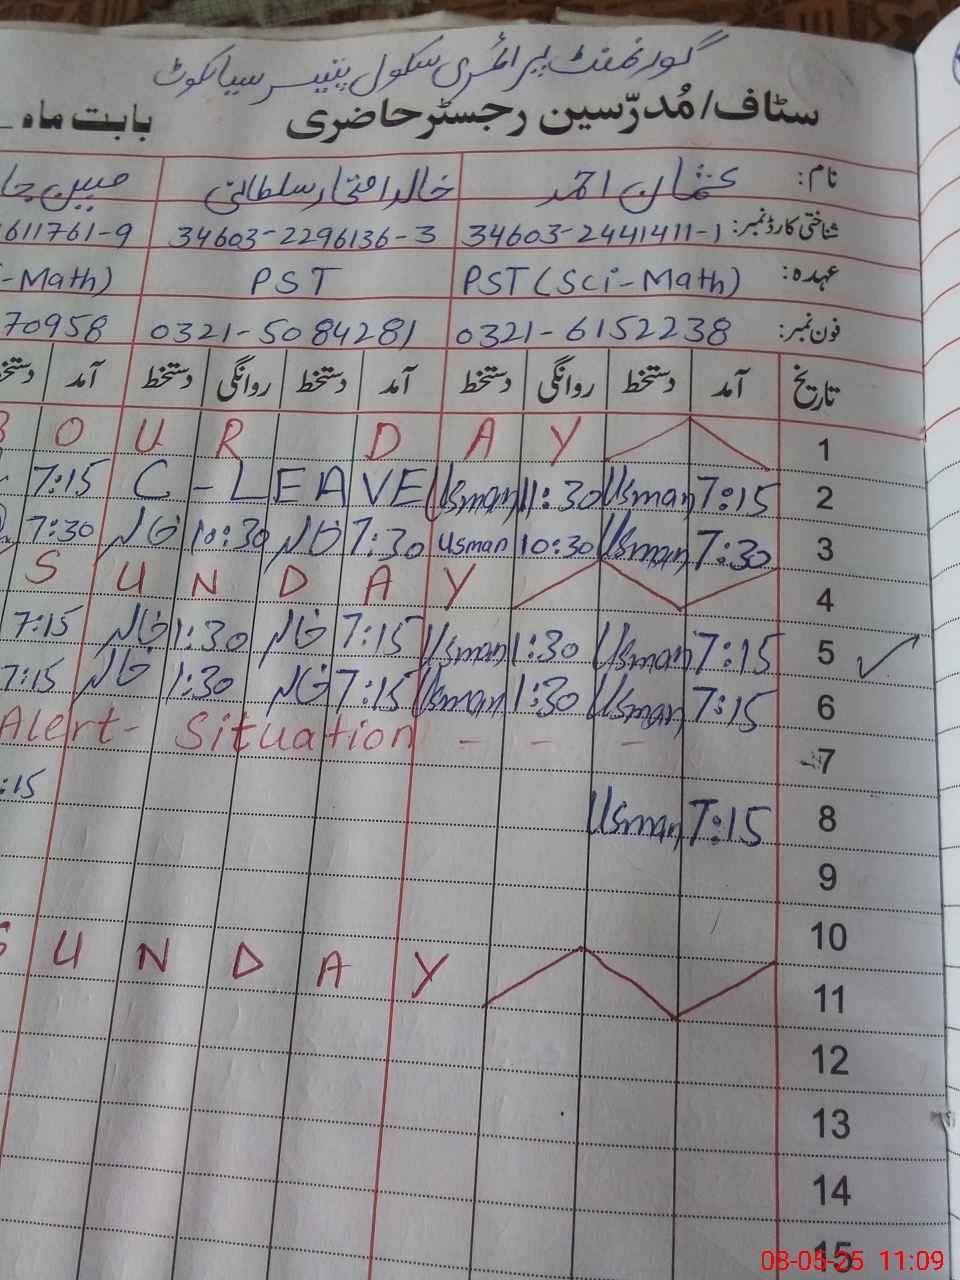 گورنمنٹ پرائمری سکول پنیسر سیالکوٹ
سٹاف/مُدرّسین رجسٹر حاضری بابت ماہ
نام: عثمان احمد خالد افتخار سلطانی مبین
شناختی کارڈ نمبر: 34603-2441411-1 34603-2296136-3 1611761-9
عہدہ: PST (Sci-Math) PST -Math)
فون نمبر: 0321-6152238 0321-5084281 70958
تاریخ آمد دستخط روانگی دستخط آمد دستخط روانگی دستخط آمد دستخط
1 OUR DAY
2 7:15 Usman 11:30 Usman C-LEAVE 7:15
3 7:30 Usman 10:30 Usman 7:30 خالد 10:30 خالد 7:30
4 SUNDAY
5 7:15 Usman 1:30 Usman 7:15 خالد 1:30 خالد 7:15
6 7:15 Usman 1:30 Usman 7:15 خالد 1:30 خالد 7:15
7 Alert- Situation - - -
8 7:15 Usman :15
9
10
11 SUNDAY
12
13
14
15
08-05-25 11:09